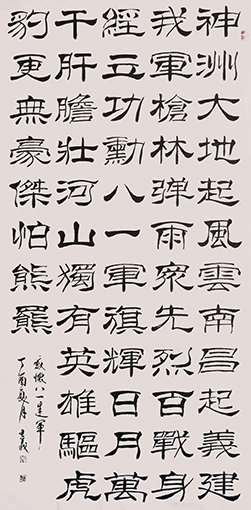 神洲大地起風雲南昌起義建
我軍槍林弹雨衆先烈百戰身
經立功勳八一軍旗輝日月萬
千肝膽壯河山獨有英雄驅虎
豹更無豪傑怕熊羆
八一建軍
丁酉夏月